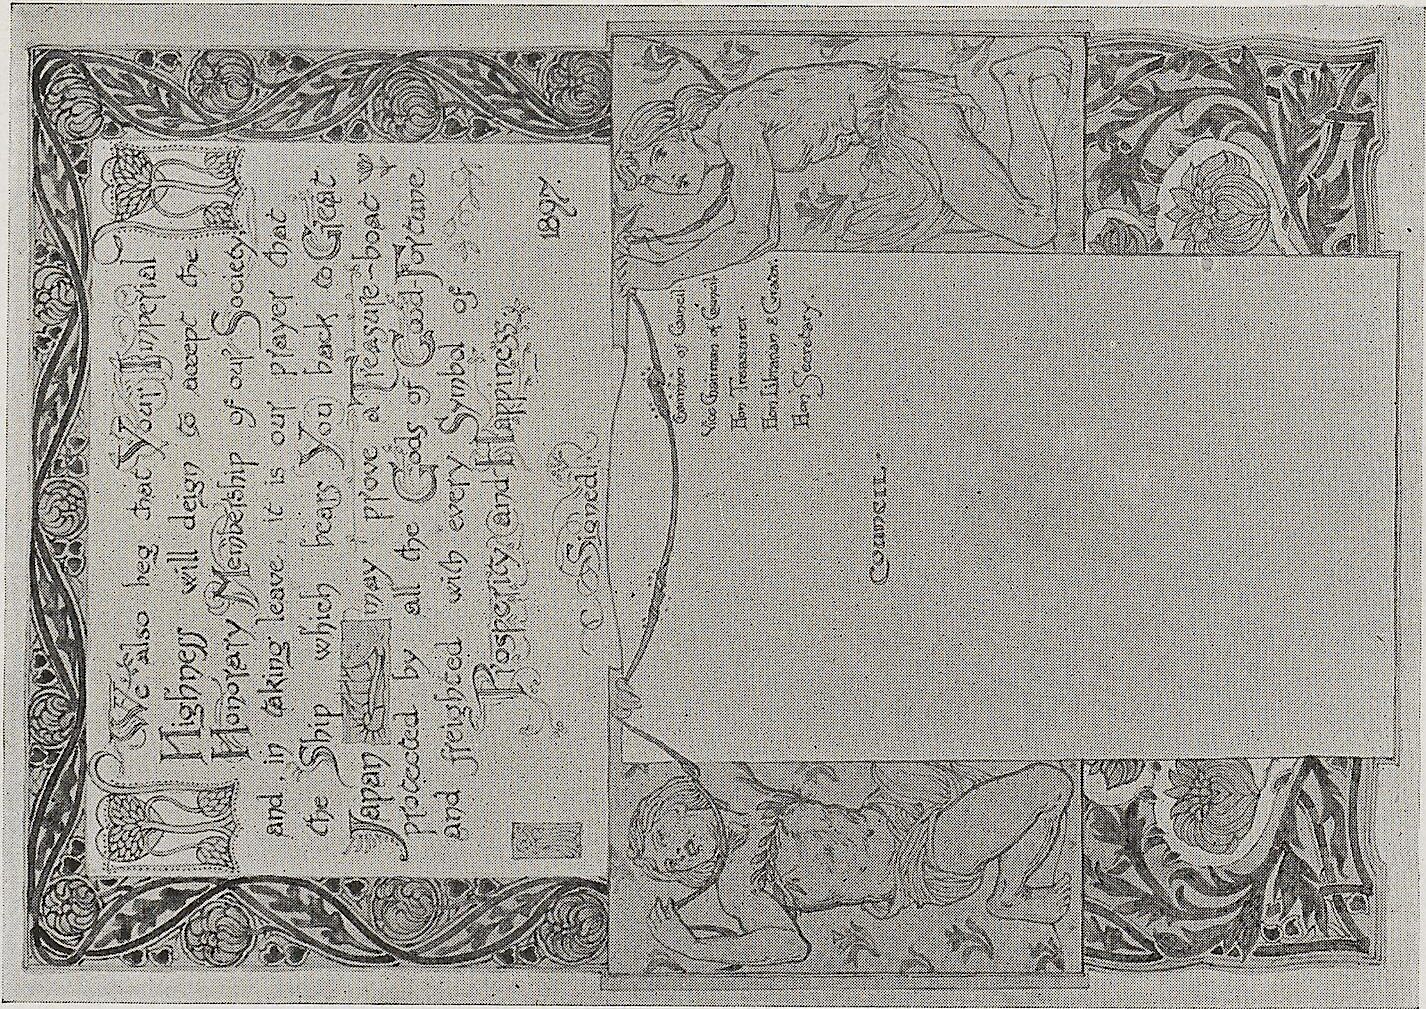 We also beg that Your Imperial
Highness will deign to accept the
Honorary Membership of our Society,
and, in taking leave, it is our prayer that
the Ship which bears You back to Great
Japan may prove a Treasure-boat
protected by all the Gods of Good-Fortune
and freighted with every Symbol of
Prosperity and Happiness.
1897.
Signed
Chairman of Council
Vice Chairman of Council
Hon Treasurer
Hon Librarian & Curator.
Hon Secretary.
COUNCIL.